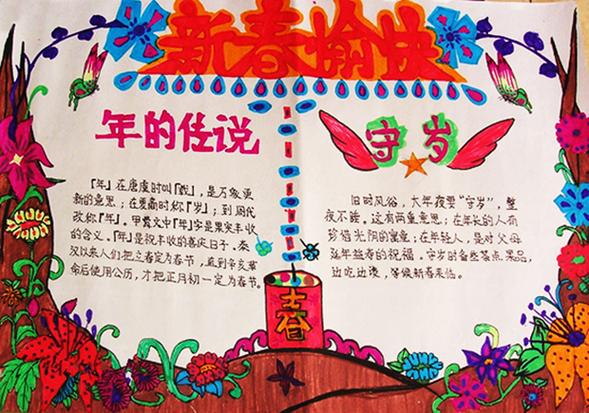 新春愉快
年的传说
「年」在唐虞时叫「载」,是万象更
新的意思;在夏商时称「岁」;到周代
改称「年」。甲骨文中「年」字是果实丰收
的含义。「年」是祝丰收的喜庆日子。秦
汉以来人们把立春定为春节,直到辛亥革
命后使用公历,才把正月初一定为春节。
守岁
旧时风俗,大年夜要“守岁”,整
夜不睡。这有两重意思:在年长的人有
珍惜光阴的寓意;在年轻人,是对父母
延年益寿的祝福。守岁时备些茶点果品,
边吃边谈,等候新春来临。
春